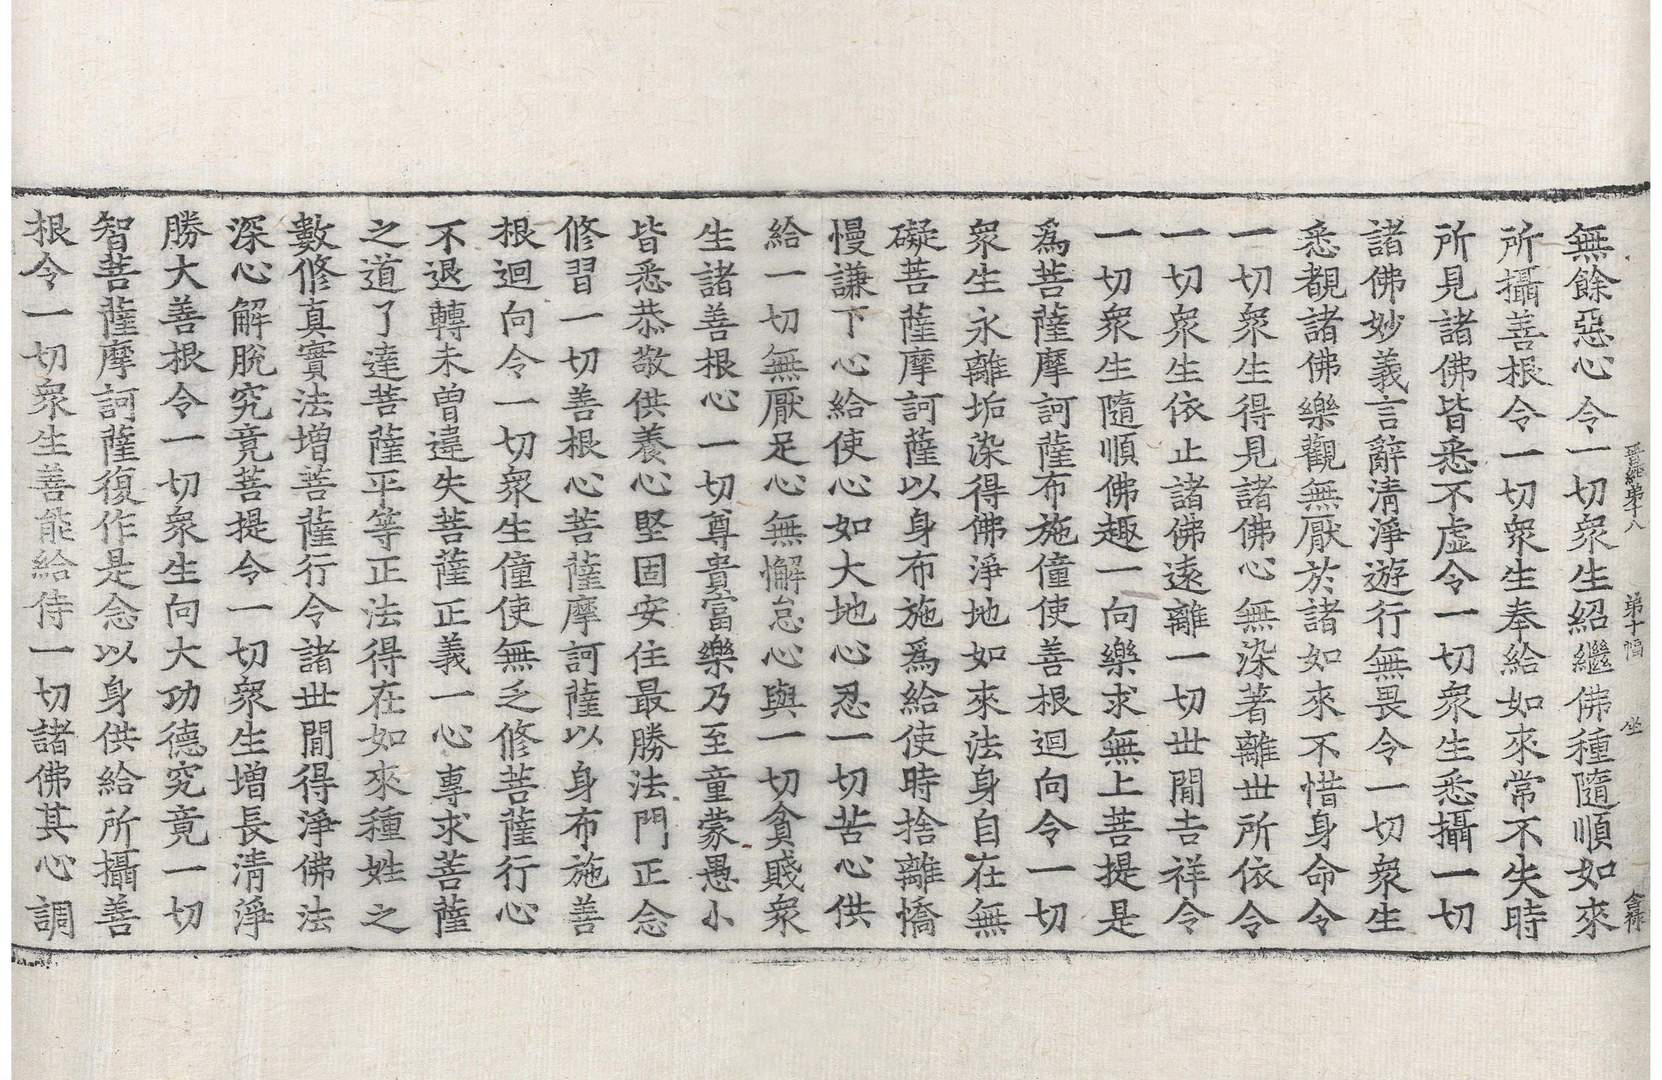 晉經第十八 第十幅 坐 含祿
無餘惡心令一切衆生紹繼佛種隨順如來
所攝善根令一切衆生奉給如來常不失時
所見諸佛皆悉不虛令一切衆生悉攝一切
諸佛妙義言辭清淨遊行無畏令一切衆生
悉覩諸佛樂觀無厭於諸如來不惜身命令
一切衆生得見諸佛心無染著離世所依令
一切衆生依止諸佛遠離一切世閒吉祥令
一切衆生隨順佛趣一向樂求無上菩提是
爲菩薩摩訶薩布施僮使善根迴向令一切
衆生永離垢染得佛淨地如來法身自在無
礙菩薩摩訶薩以身布施爲給使時捨離憍
慢謙下心給使心如大地心忍一切苦心供
給一切無厭足心無懈怠心與一切貧賤衆
生諸善根心一切尊貴富樂乃至童蒙愚小
皆悉恭敬供養心堅固安住最勝法門正念
修習一切善根心菩薩摩訶薩以身布施善
根迴向令一切衆生僮使無乏修菩薩行心
不退轉未曾違失菩薩正義一心專求菩薩
之道了達菩薩平等正法得在如來種姓之
數修真實法增菩薩行令諸世閒得淨佛法
深心解脫究竟菩提令一切衆生增長清淨
勝大善根令一切衆生向大功德究竟一切
智菩薩摩訶薩復作是念以身供給所攝善
根令一切衆生善能給侍一切諸佛其心調